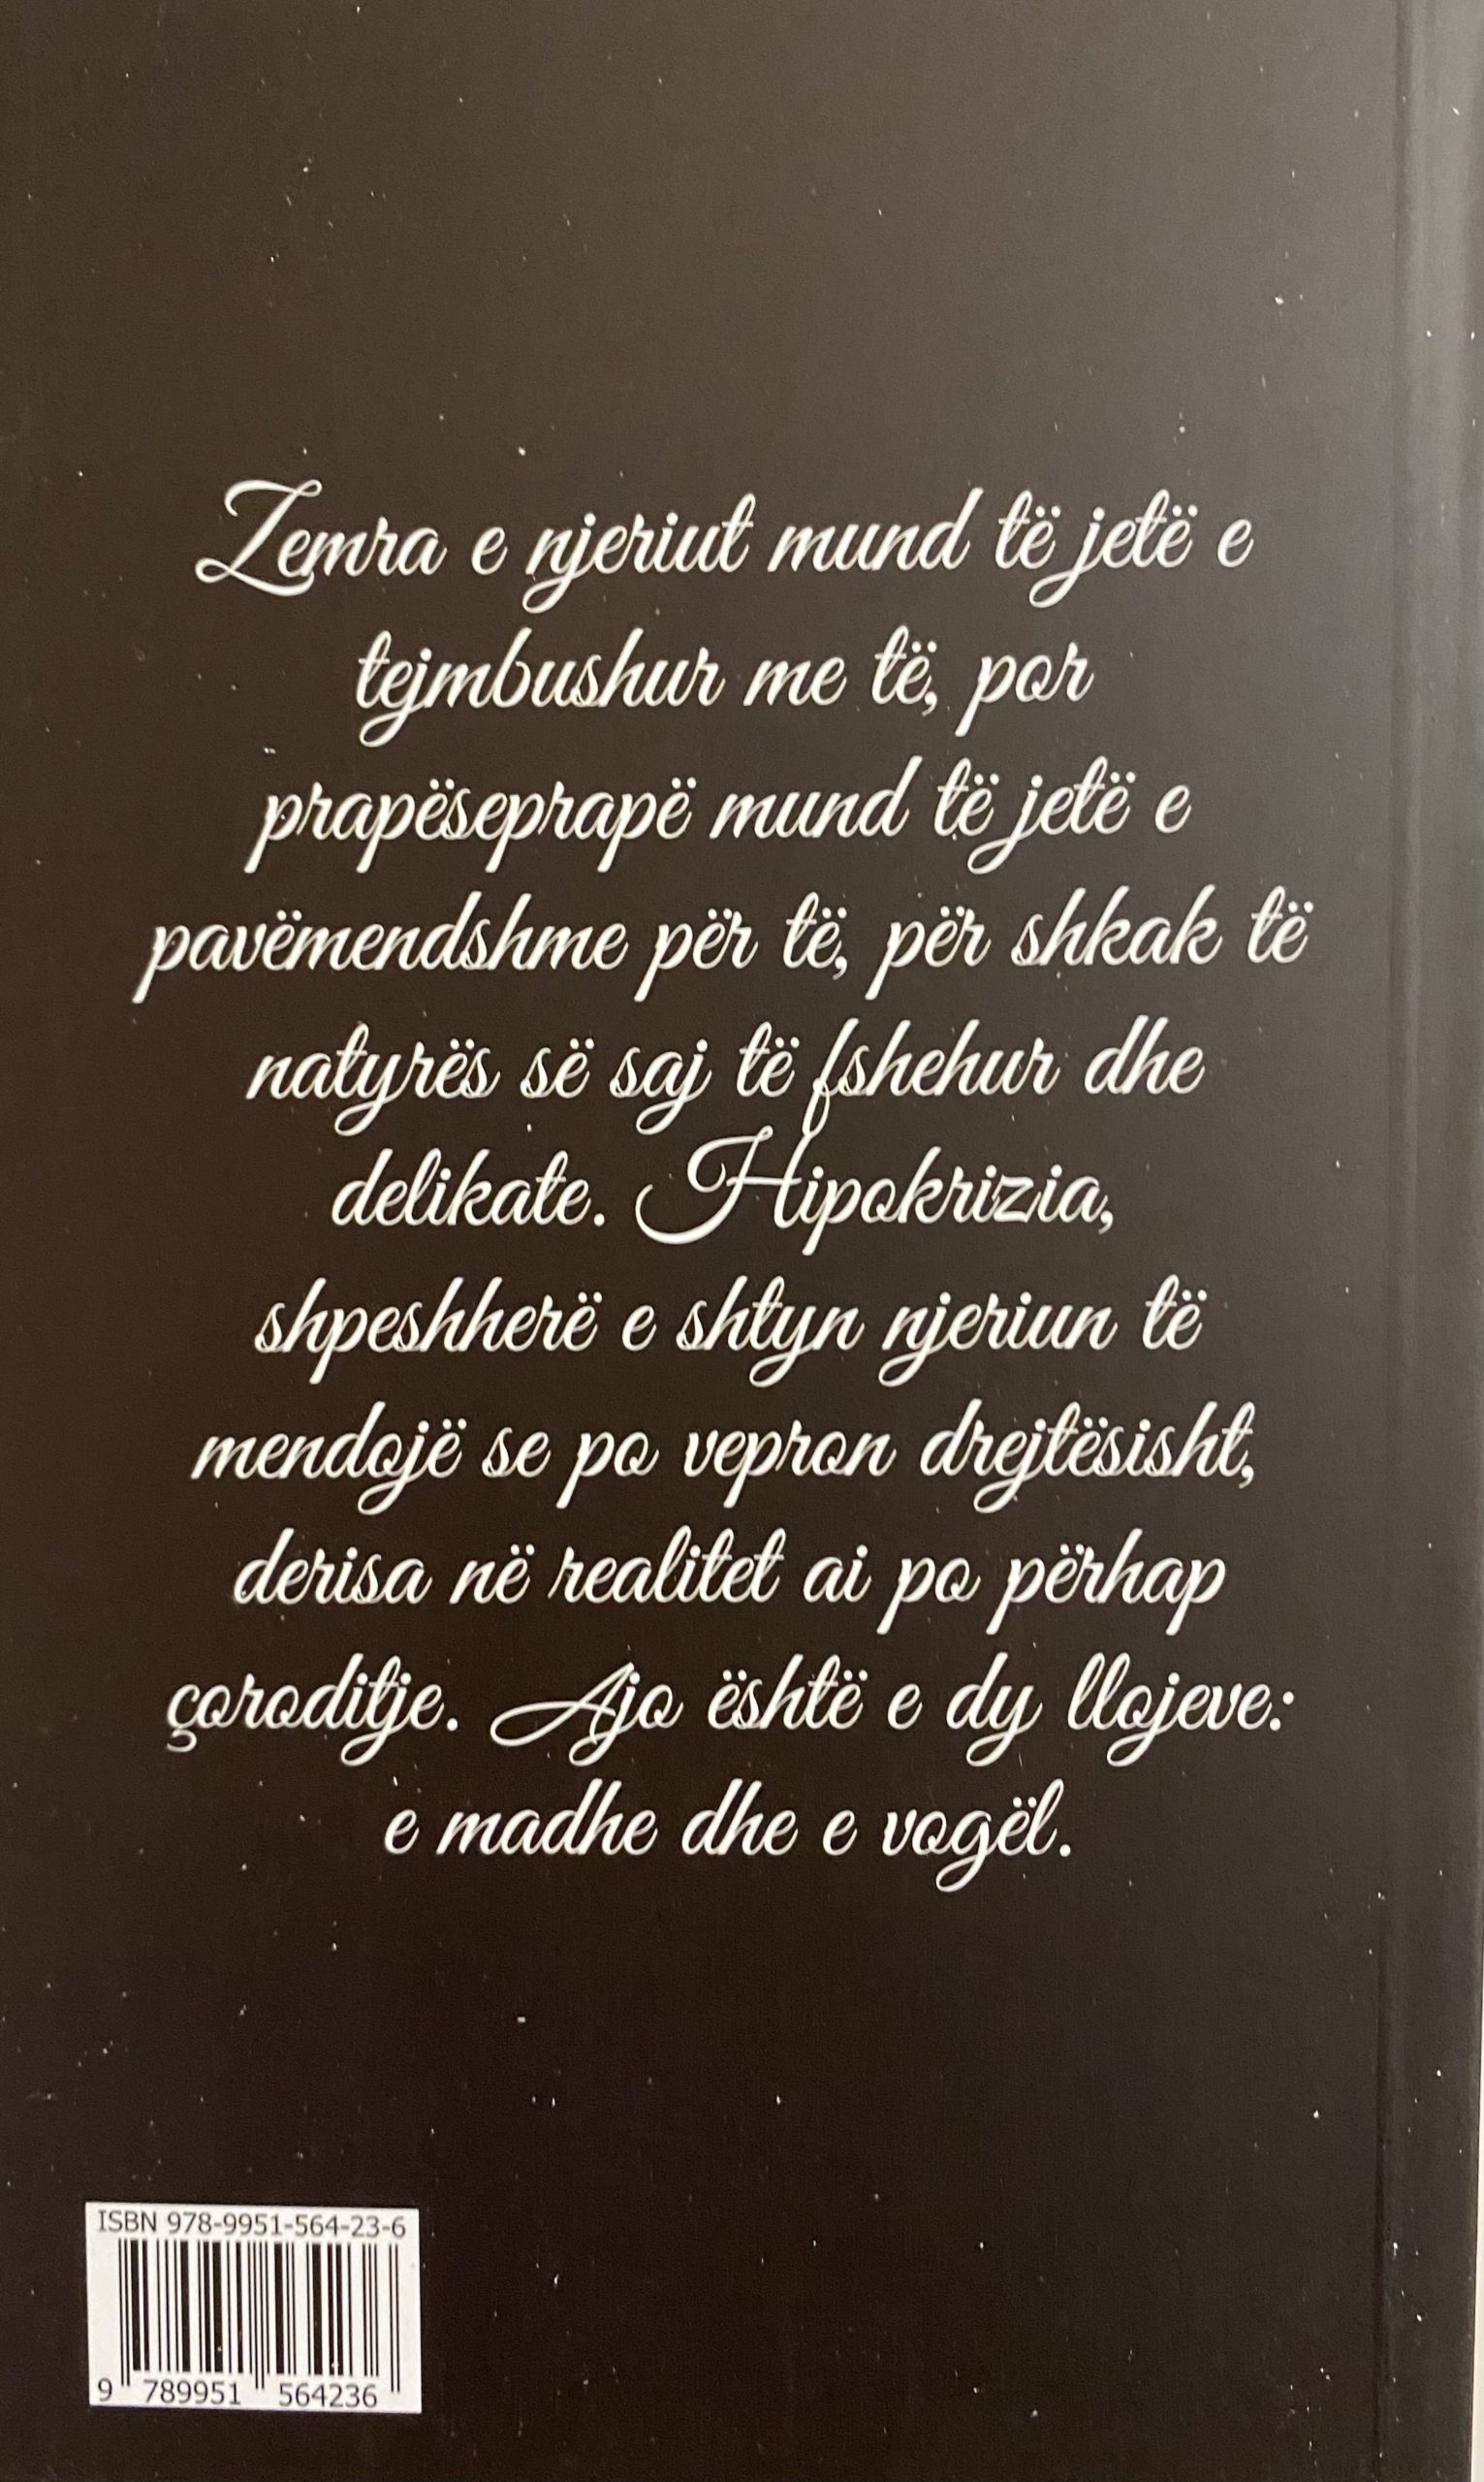 Zemra e njeriut mund të jetë e
tejmbushur me të, por
prapëseprapë mund të jetë e
pavëmendshme për të, për shkak të
natyrës së saj të fshehur dhe
delikate. Hipokrizia,
shpeshherë e shtyn njeriun të
mendojë se po vepron drejtësisht,
derisa në realitet ai po përhap
çoroditje. Ajo është e dy llojeve:
e madhe dhe e vogël.
ISBN 978-9951-564-23-6
9 789951 564236